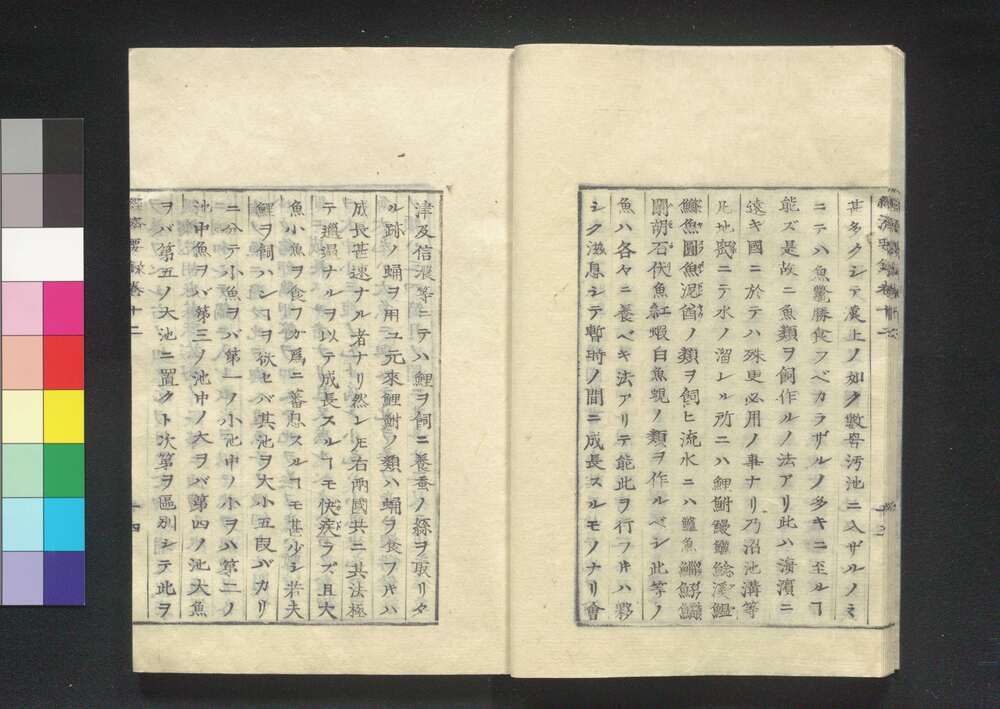 經濟要錄卷十二
甚多クシテ最上ノ如ク數罟汚池ニ入ザルノミ
ニテハ魚鼈勝食フベカラザルノ多キニ至ルヿ
能ズ是故ニ魚類ヲ飼作ルノ法アリ此ハ海濱ニ
遠キ國ニ於テハ殊更必用ノ事ナリ乃沼池溝等
凡地窪ニテ水ノ溜レル所ニハ鯉鮒鰻鱺鯰
魚圓魚泥鰌ノ類ヲ飼ヒ流水ニハ魚
石伏魚紅蝦白魚蜆ノ類ヲ作ルベシ此等ノ
魚ハ各々ニ養ベキ法アリテ能此ヲ行フ寸ハ夥
シク滋息シテ暫時ノ間ニ成長スルモノナリ會
津及信濃等ニテハ鯉ヲ飼ニ養蚕ノ絲ヲ取リタ
ル跡ノ蛹ヲ用ユ元來鯉鮒ノ類ハ蛹ヲ食フ寸ハ
成長甚速ナル者ナリ然レ𪜈右兩國共ニ其法極
テ麁ナルヲ以テ成長スルヿモ快疾ラズ且大
魚小魚ヲ食フカ爲ニ蕃息スルヿモ甚少シ若夫
鯉ヲ飼ハンヿヲ欲セバ其池ヲ大小五段バカリ
ニ分テ小魚ヲバ第一ノ小池中ノ小ヲハ第二ノ
池中魚ヲバ第三ノ池中ノ大ヲバ第四ノ池大魚
ヲバ第五ノ大池ニ置クト次第ヲ區別シテ此ヲ
經濟要錄卷十二
十四